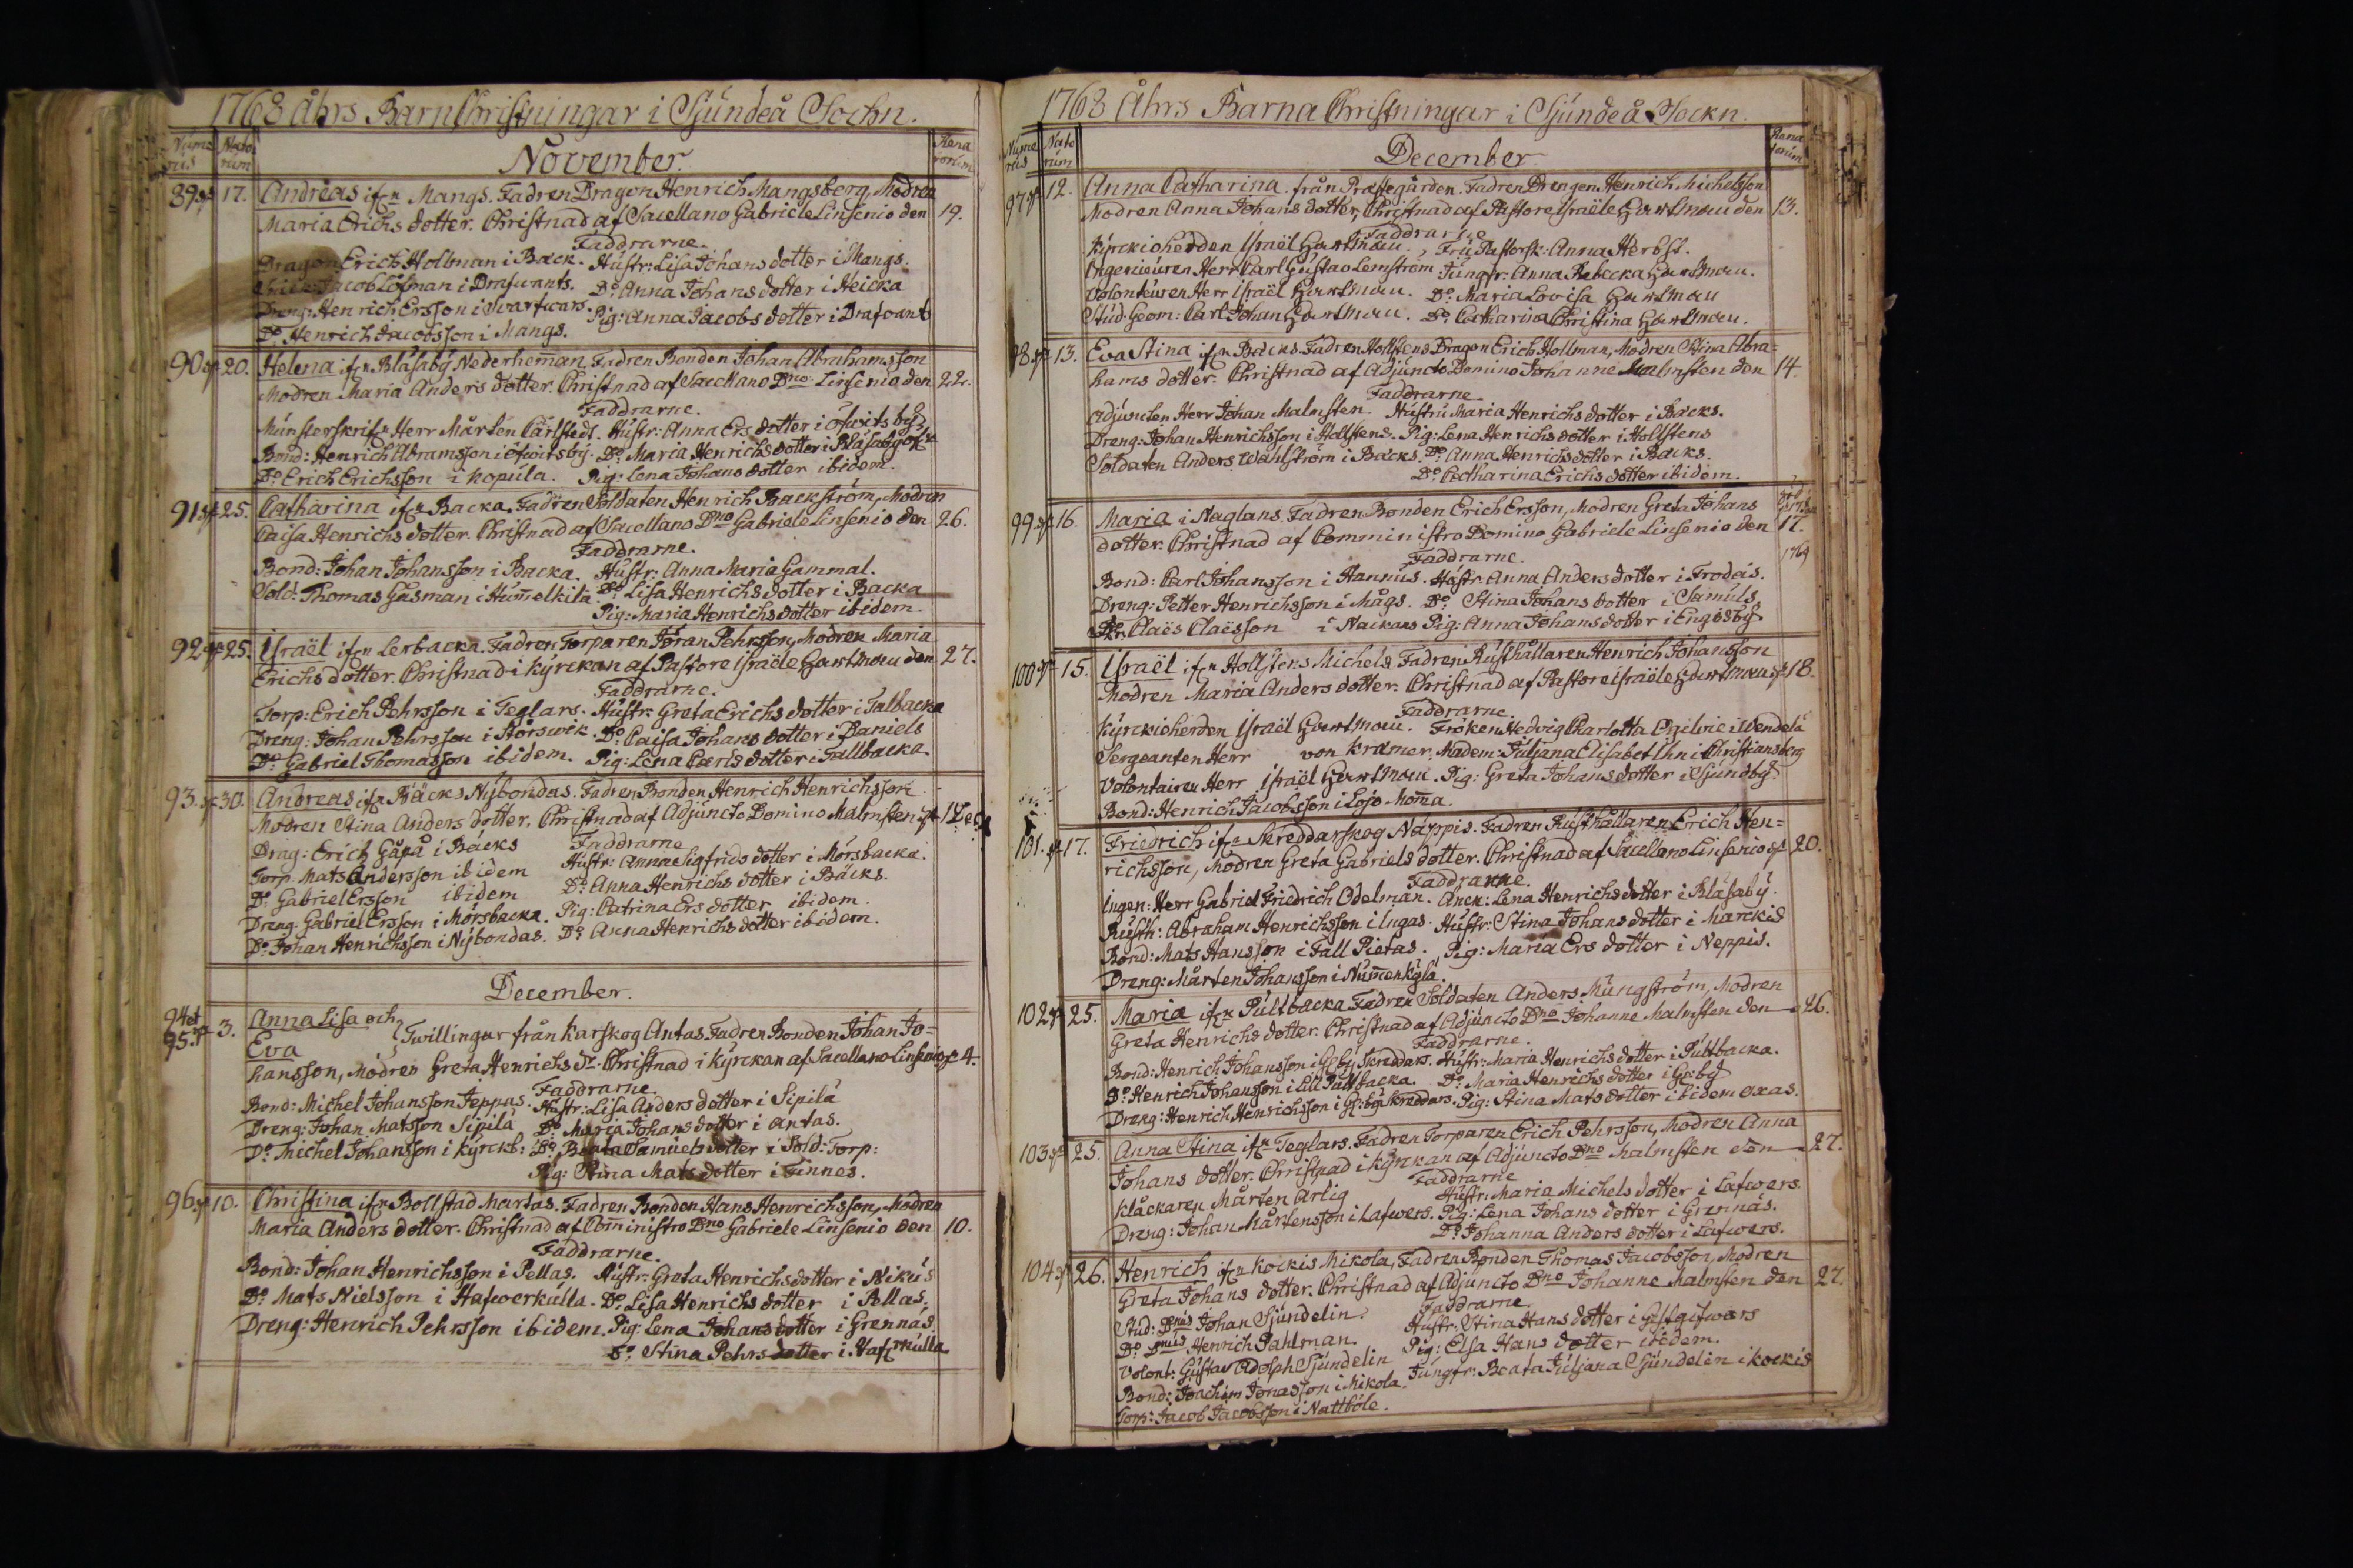 1768 åhrs Barn Christningar i Sjundeå Sochn.
Nume rus Nato rum November. Rena torum
89 17. Andreas ifrn Mangs. Fadren Dragon Henrich Mangsberg, Modren
Maria Erichs dotter. Christnad af Sacellano Gabriele Linsenio den 19.
Faddrarne.
Dragon Erich Hollman i Back. Hustr: Lisa Johans dotter i Mangs.
Jacob Löfman i Drafwants. Do Anna Johans dotter i Heicka
Dreng: Henrich Ersson i Svartwars. Pig: Anna Jacobs dotter i Drafvants
Do Henrich Jacobsson i Mangs.
90 20. Helena ifrn Blåsaby Nederheman, Fadren Bonden Johan Abrahamsson
Modren Maria Anders dotter. Christnad af Sacellano Dno Linsenio den 22.
Faddrarne.
Munsterskrifr Herr Mårten Carlstedt. Hustr: Anna Ers dotter i öfwitsby
Bond: Henrich Abramsson i öfwitsby. Do Maria Henrichs dotter i Blåsaby
Do Erich Erichsson i Kopula. Pig: Lena Johans dotter ibidem.
91 25. Catharina ifrn Backa, Fadren Soldaten Henrich Backström, Modren
Caisa Henrichs dotter. Christnad af Sacellano Dno Gabriele Linsenio den 26.
Faddrarne.
Bond: Johan Johansson i Backa. Hustr: Anna Maria Gammal.
Sold: Thomas Gåsman i Humelkila. Do Lisa Henrichs dotter i Backa
Pig: Maria Henrichs dotter ibidem.
92 25. Israël ifrn Lerbacka. Fadren Torparen Jöran Pehrsson, Modren Maria
Erichs dotter. Christnad i Kyrckan af Pastore Israële Hartman den 27.
Faddrarne.
Torp: Erich Pehrsson i Teglars. Hustr: Greta Erichs dotter i Talbacka
Dreng: Johan Pehrsson i Störswik. Do Caisa Johans dotter i Daniels
Do Gabriel Thomasson ibidem. Pig: Lena Carls dotter i Tallbacka.
93. 30. Andreas ifrn Bäcks Nybondas. Fadren Bonden Henrich Henrichsson
Modren Stina Anders dotter. Christnad af Adjuncto Domino Malmsten 1 Dec
Faddrarne
Drag: Erich Gåpå i Bäcks Hustr: Anna Sigfrids dotter i Mörsbacka.
Torp. Mats Andersson ibidem Do Anna Henrichs dotter i Bäcks.
Do Gabriel Ersson ibidem Pig: Catrina Ers dotter ibidem.
Dreng. Gabriel Ersson i Mörsbacka. Do Anna Henrichs dotter ibidem.
Do Johan Henrichsson i Nybondas.
December.
94 et 95. 3. Anna Lisa och
Eva } Twillingar från Karskog Antas. Fadren Bonden Johan Jo=
hansson, Modren Greta Henrichs dr. Christnad i Kyrckan af Sacellano Linsenio 4.
Faddrarne.
Bond: Michel Johansson Jeppas. Hustr: Lisa Anders dotter i Sipilä
Dreng: Johan Matsson Sipilä Do Maria Johans dotter i Antas.
Do Michel Johansson i Kyrckb: Do Beata Samuels dotter i Sold: Torp:
Pig: Stina Mats dotter i Finnes.
96 10. Christina ifrn Bollstad Martas. Fadren Bonden Hans Henrichsson, Modren
Maria Anders dotter. Christnad af Coministro Dno Gabriele Linsenio den 10.
Faddrarne.
Bond: Johan Henrichsson i Pellas. Hustr: Greta Henrichs dotter i Nikus
Do Mats Nielsson i Hafwerkulla. Do Lisa Henrichs dotter i Pellas,
Dreng: Henrich Pehrsson ibidem. Pig: Lena Johans dotter i Grennäs.
Do Stina Pehrs dotter i Hafrkulla
1768 Åhrs Barna Christningar i Sjundeå Sockn.
Nume rus Nato rum December Rena torum
97 12. Anna Catharina från Præstegården. Fadren Drengen Henrich Michelsson
Modren Anna Johans dotter, Christnad af Pastore Israële Hartman den 13.
Faddrarne
Kyrckioherden Israël Hartman. Fru Pastorsk: Anna Herbst.
Ingenieuren Herr Carl Gustav Lemström Jungfr: Anna Rebecka Hartman.
Volonteuren Herr Israël Hartman. Do Maria Lovisa Hartman
Stud: Geom: Carl Johan Hartman. Do Catharina Christina Hartman.
98 13. Eva Stina ifrn Backs. Fadren Hollstens Dragon Erich Hollman, Modren Stina Abra=
hams dotter. Christnad af Adjuncto Domino Johanne Malmsten den 14.
Faddrarne
Adjuncten Herr Johan Malmsten. Hustru Maria Henrichs dotter i Backs.
Dreng: Johan Henrichsson i Hollstens. Pig: Lena Henrichs dotter i Hollstens
Soldaten Anders Wahlström i Backs. Do Anna Henrichs dotter i Backs.
Do Catharina Erichs dotter ibidem.
99 16. Maria i Naglans. Fadren Bonden Erich Ersson, Modren Greta Johans
dotter. Christnad af Comministro Domino Gabriele Linsenio den 17.
Faddrarne. 1769
Bond: Carl Johansson i Hannus. Hustr: Anna Anders dotter i Frodäs.
Dreng: Petter Henrichsson i Mågs. Do Stina Johans dotter i Samuls.
Do Claës Claësson i Nackans Pig: Anna Johans dotter i Engisby
100 15. Israël ifrn Hollstens Michels Fadren Rusthållaren Henrich Johansson
Modren Maria Anders dotter. Christnad af Pastore Israële Hartman 18.
Faddrarne.
Kyrckioherden Israël Hartman. Fröken Hedvig Charlotta Ogilvie i Wendelä
Sergeanten Herr von Kræmer, Madem: Juljana Elisabet Ihn i Christiansberg
Volontairen Herr Israël Hartman. Pig: Greta Johans dotter i Sjundby
Bond: Henrich Jacobsson i Lojo Moma.
101. 17. Friedrich ifrn Skreddarskog Näppis. Fadren Rusthållaren Erich Hen=
richsson, Modren Greta Gabriels dotter. Christnad af Sacellano Linsenio 20.
Faddrarne.
Ingen: Herr Gabriel Friedrich Odelman. Anck: Lena Henrichs dotter i Blåsaby.
Rusth: Abraham Henrichsson i Ingas. Hustr: Stina Johans dotter i Marckis
Bond: Mats Hansson i Fall Pietas. Pig: Maria Ers dotter i Neppis.
Dreng: Mårten Johansson i Numenkylä.
102 25. Maria ifrn Pultbacka Fadren Soldaten Anders Mungström, Modren
Greta Henrichs dotter. Christnad af Adjuncto Dno Johanne Malmsten den 26.
Faddrarne.
Bond: Henrich Johansson i Geby Skreddars. Hustr: Maria Henrichs dotter i Pultbacka.
Do Henrich Johansson i Lill Pultbacka. Do Maria Henrichs dotter i Geby
Dreng: Henrich Henrichsson i Geby Skreddars. Pig: Stina Mats dotter ibidem oxas.
103 25. Anna Stina ifrn Teglars. Fadren Torparen Erich Pehrsson, Modren Anna
Johans dotter. Christnad i Kyrckan af Adjuncto Dno Malmsten den 27.
Faddrarne
Klåckaren Mårten Artig Hustr: Maria Michels dotter i Lafwers.
Dreng: Johan Mårtensson i Lafwers. Pig: Lena Johans dotter i Grennäs.
Do Johanna Anders dotter i Lafwers.
104 26. Henrich ifrn Kockis Mikola, Fadren Bonden Thomas Jacobsson, Modren
Greta Johans dotter. Christnad af Adjuncto Dno Johanne Malmsten den 27.
Faddrarne.
Stud: Dnus Johan Sjundelin. Hustr: Stina Hans dotter i Gestgifwars
Do Dnus Henrich Pahlman. Pig: Elsa Hans dotter ibidem.
Volont: Gustav Adolph Sjundelin Jungfr: Beata Juljana Sjundelin i Kockis
Bond: Joachim Jonasson i Mikola.
Torp: Jacob Jacobsson i Nattböle.